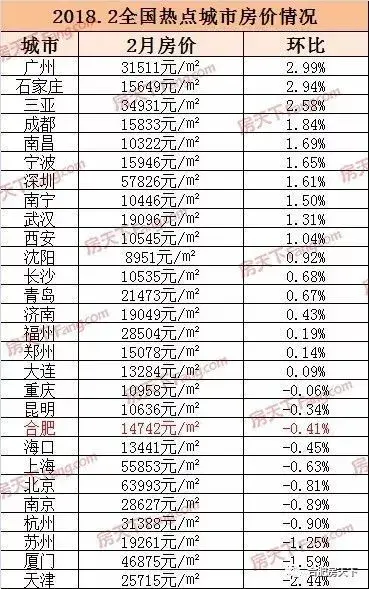 2018.2全国热点城市房价情况
城市 2月房价 环比
广州 31511元/㎡ 2.99%
石家庄 15649元/㎡ 2.94%
三亚 34931元/㎡ 2.58%
成都 15833元/㎡ 1.84%
南昌 10322元/㎡ 1.69%
宁波 15946元/㎡ 1.65%
深圳 57826元/㎡ 1.61%
南宁 10446元/㎡ 1.50%
武汉 19096元/㎡ 1.31%
西安 10545元/㎡ 1.04%
沈阳 8951元/㎡ 0.92%
长沙 10535元/㎡ 0.68%
青岛 21473元/㎡ 0.67%
济南 19049元/㎡ 0.43%
福州 28504元/㎡ 0.19%
郑州 15078元/㎡ 0.14%
大连 13284元/㎡ 0.09%
重庆 10958元/㎡ -0.06%
昆明 10636元/㎡ -0.34%
合肥 14742元/㎡ -0.41%
海口 13441元/㎡ -0.45%
上海 55853元/㎡ -0.63%
北京 63993元/㎡ -0.81%
南京 28627元/㎡ -0.89%
杭州 31388元/㎡ -0.90%
苏州 19261元/㎡ -1.25%
厦门 46875元/㎡ -1.59%
天津 25715元/㎡ -2.44%
房天下Fang.com
合肥房天下